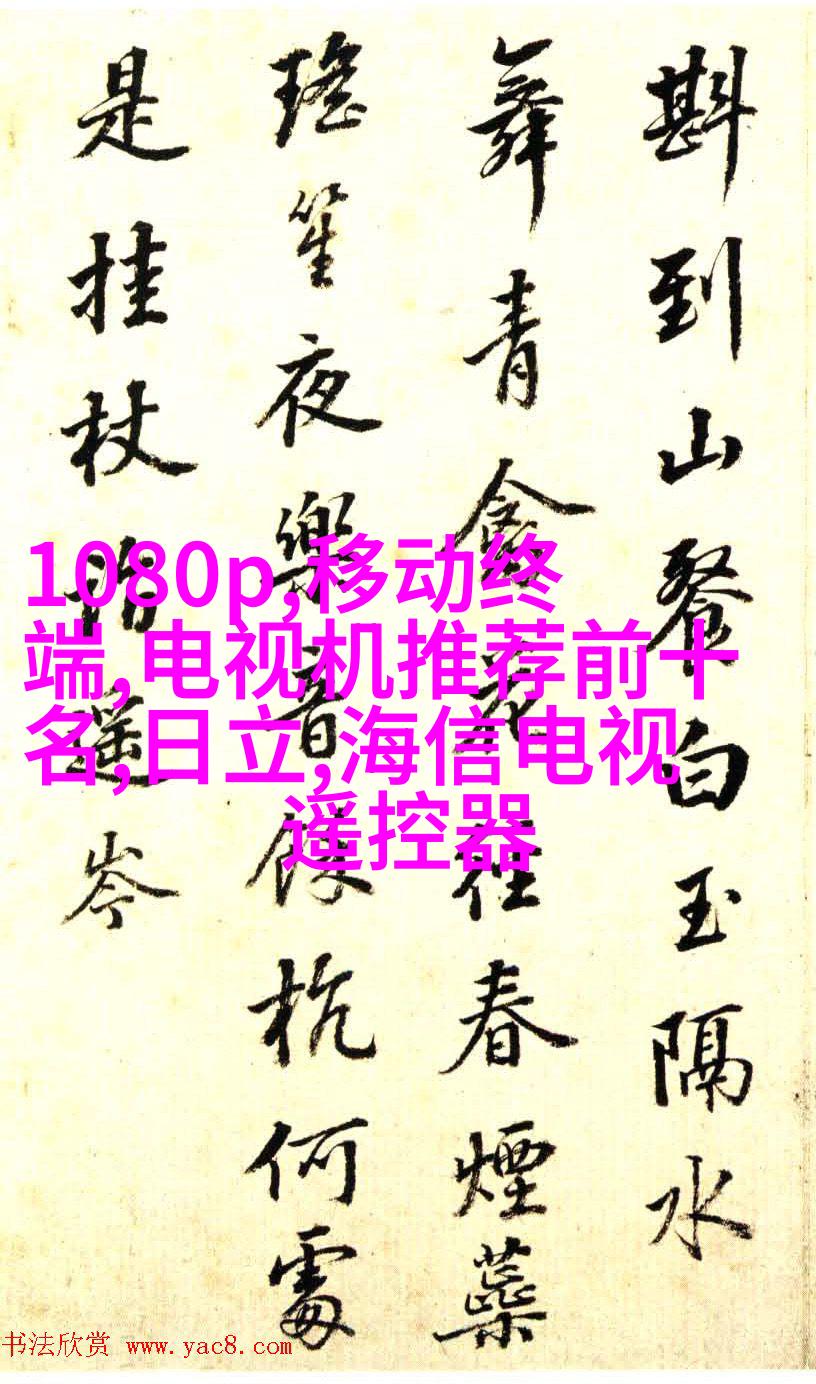 斟到山餐白玉隔水
舞青禽花徑春煙蘂
瑤笙夜樂音餘杭何處
是挂杖指遙岑
1080p,移动终
端,电视机推荐前十
名,日立,海信电视
遥控器
书法欣赏 www.yac8.com